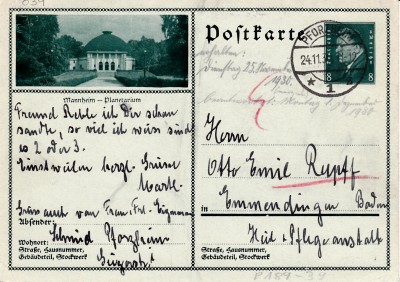 Postkarte
PFOR
24.11.
1
8 8
erhalten:
Dienstag 25. November
1930.
beantwortet: Montag 1. Dezember
1930
Mannheim – Planetarium
Freund Stehle ich Dir schon
sandte, so viel ich weiss sind
es 2 oder 3.
Einstweilen herzl. Grüsse
Gruss auch von Frau
Absender:
Schmid Pforzheim
Wohnort:
Straße, Hausnummer,
Gebäudeteil, Stockwerk
Herrn
Otto Emil Rupff
in Emmendingen Baden
Heil & Pflegeanstalt
Straße, Hausnummer,
Gebäudeteil, Stockwerk